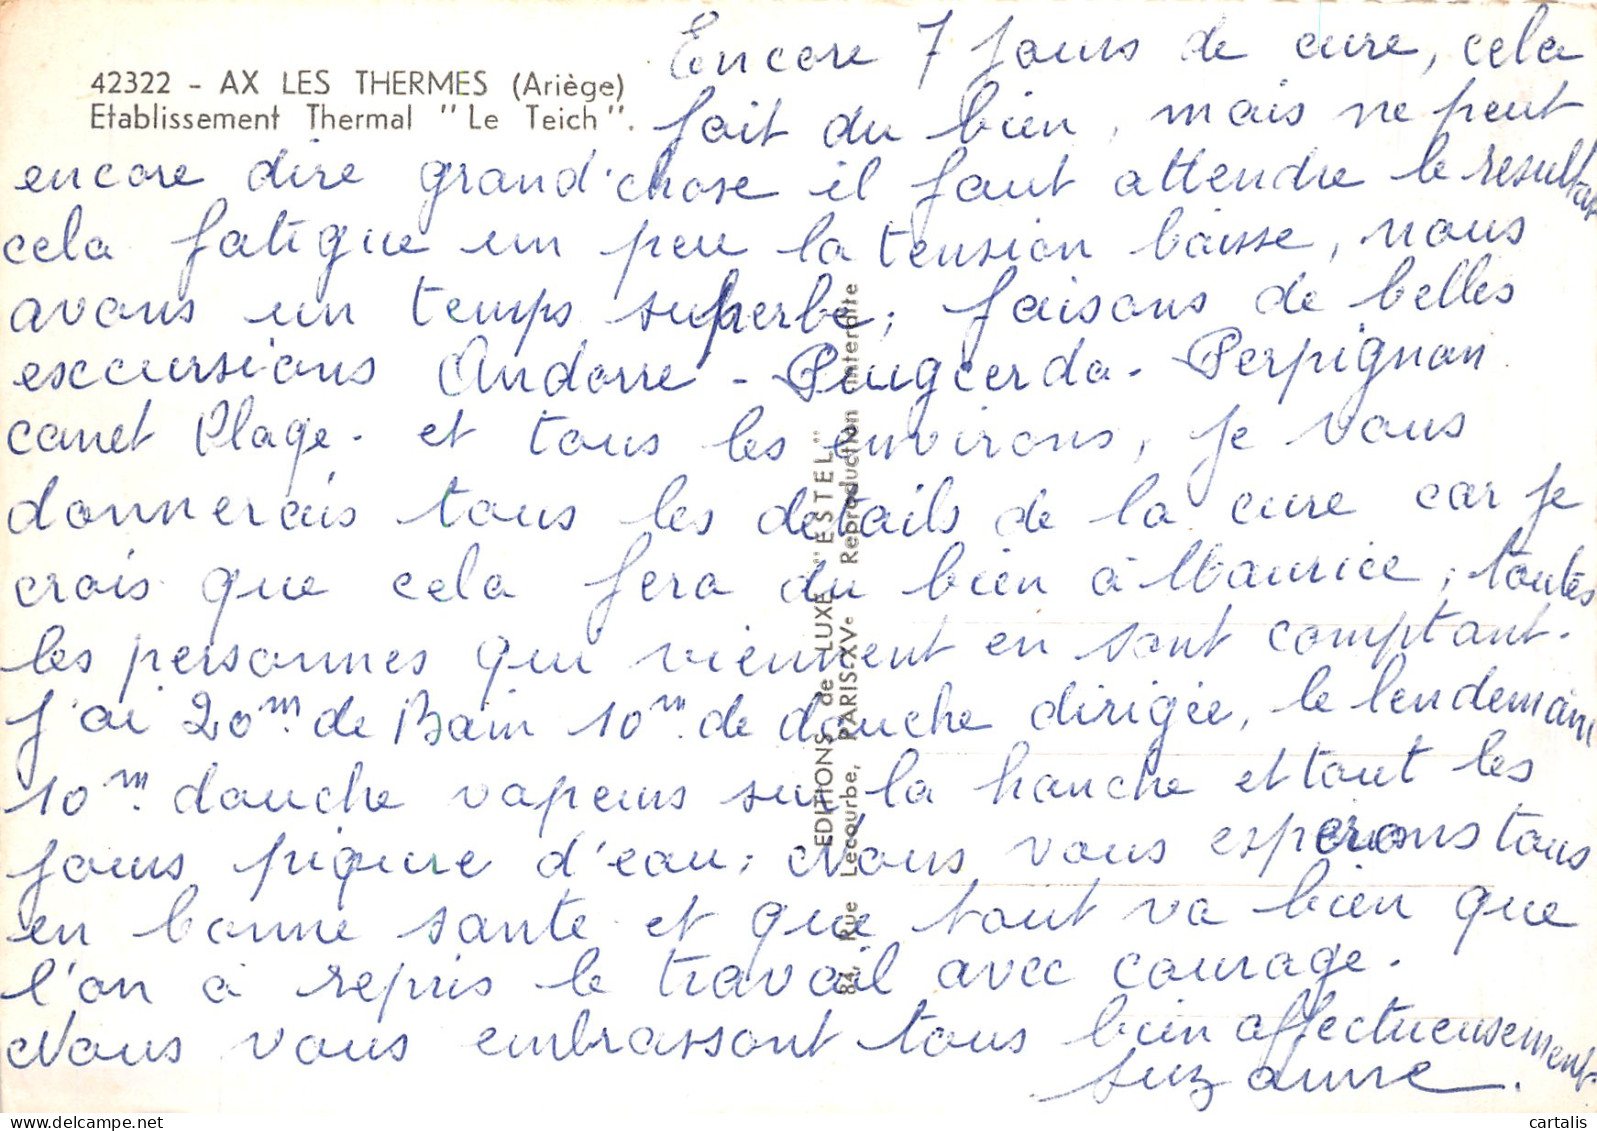 42322 - AX LES THERMES (Ariège)
Etablissement Thermal "Le Teich".
Encore 7 Jours de cure, cela
fait du bien, mais ne peut
encore dire grand'chose il faut attendre le resultat
cela fatigue un peu la tension baisse, nous
avons un temps superbe; faisons de belles
excursions Andorre - Puigcerda - Perpignan
canet Plage. et tous les environs, je vous
donnerais tous les details de la cure car je
crois que cela fera du bien à Maurice, toutes
les personnes qui viennent en sont comptant.
J'ai 20m. de Bain 10m. de douche dirigée, le lendemain
10m. douche vapeurs sur la hanche et tout les
jours piqure d'eau; Nous vous esperons tous
en bonne sante et que tout va bien que
l'on a repris le travail avec courage.
Nous vous embrassont tous bien affectueusement
Suzanne.
EDITIONS de LUXE "ESTEL"
84, Rue Lecourbe, PARIS-XVe Reproduction interdite
cartalis